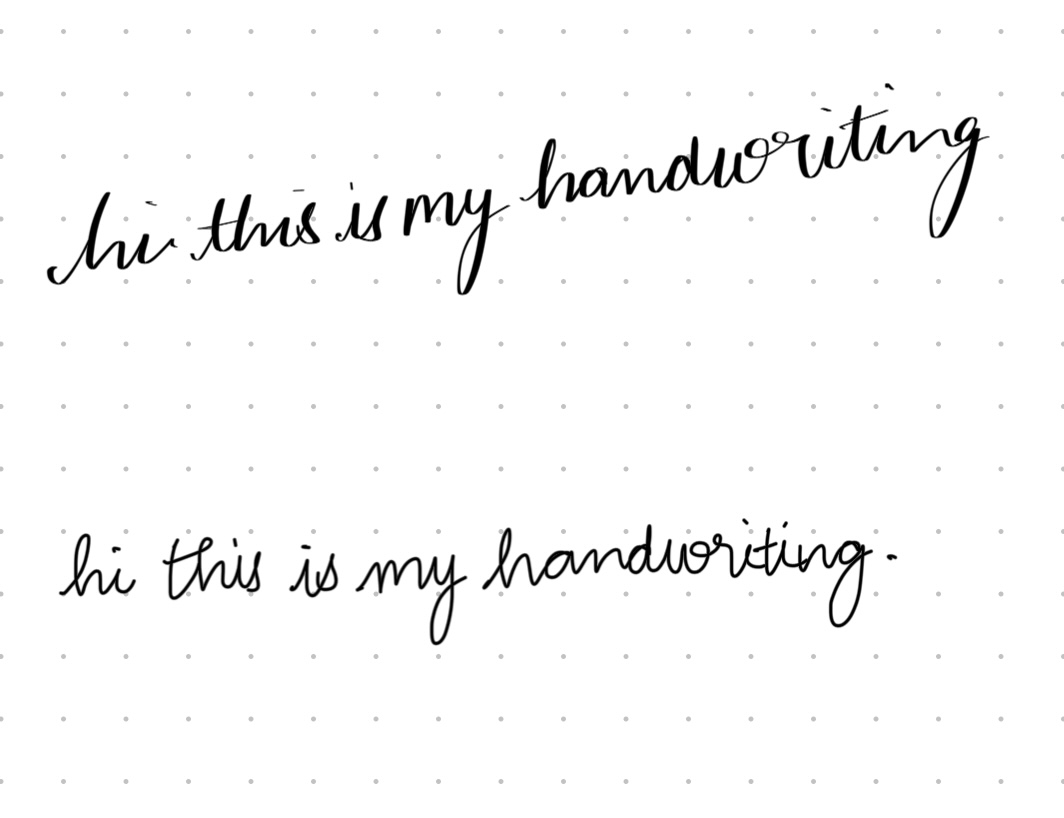 hi this is my handwriting
hi this is my handwriting.